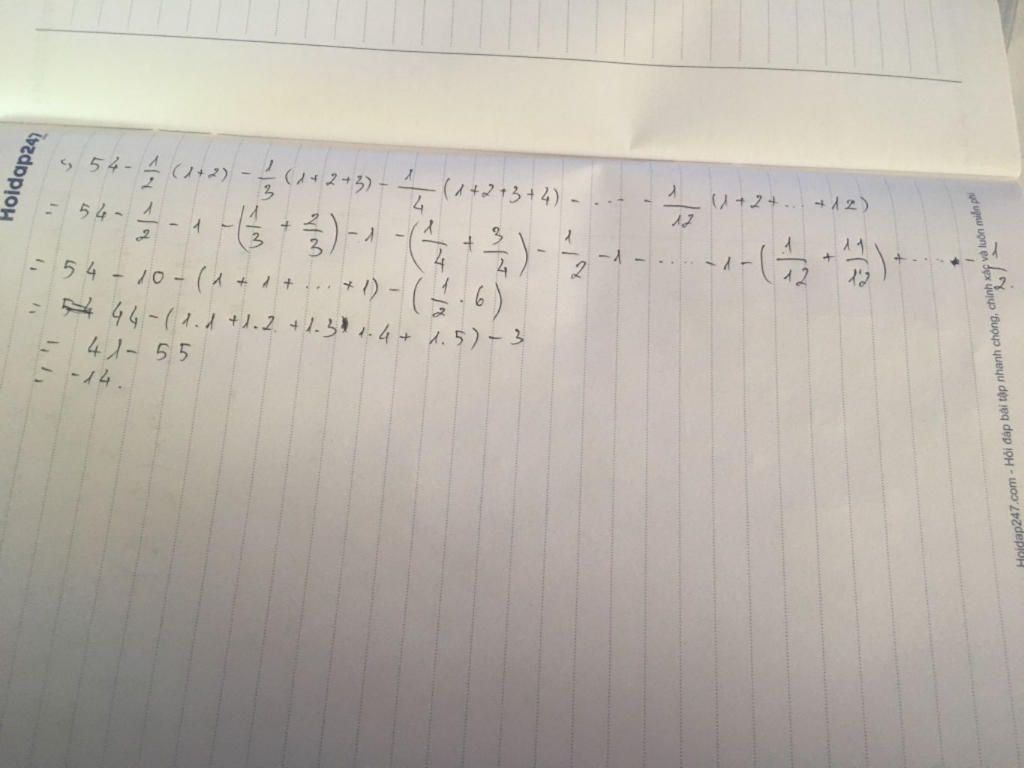 Hoidap247
↪ 54 - 1/2 (1+2) - 1/3 (1+2+3) - 1/4 (1+2+3+4) - .... - 1/12 (1+2+...+12)
= 54 - 1/2 - 1 - (1/3 + 2/3) - 1 - (1/4 + 3/4) - 1/2 - 1 - .... - 1 - (1/12 + 11/12) + ....
= 54 - 10 - (1 + 1 + ... + 1) - (1/2 . 6)
= 44 - (1.1 + 1.2 + 1.3 1.4 + 1.5) - 3
= 41 - 55
= -14.
Hoidap247.com - Hỏi đáp bài tập nhanh chóng, chính xác và luôn miễn phí